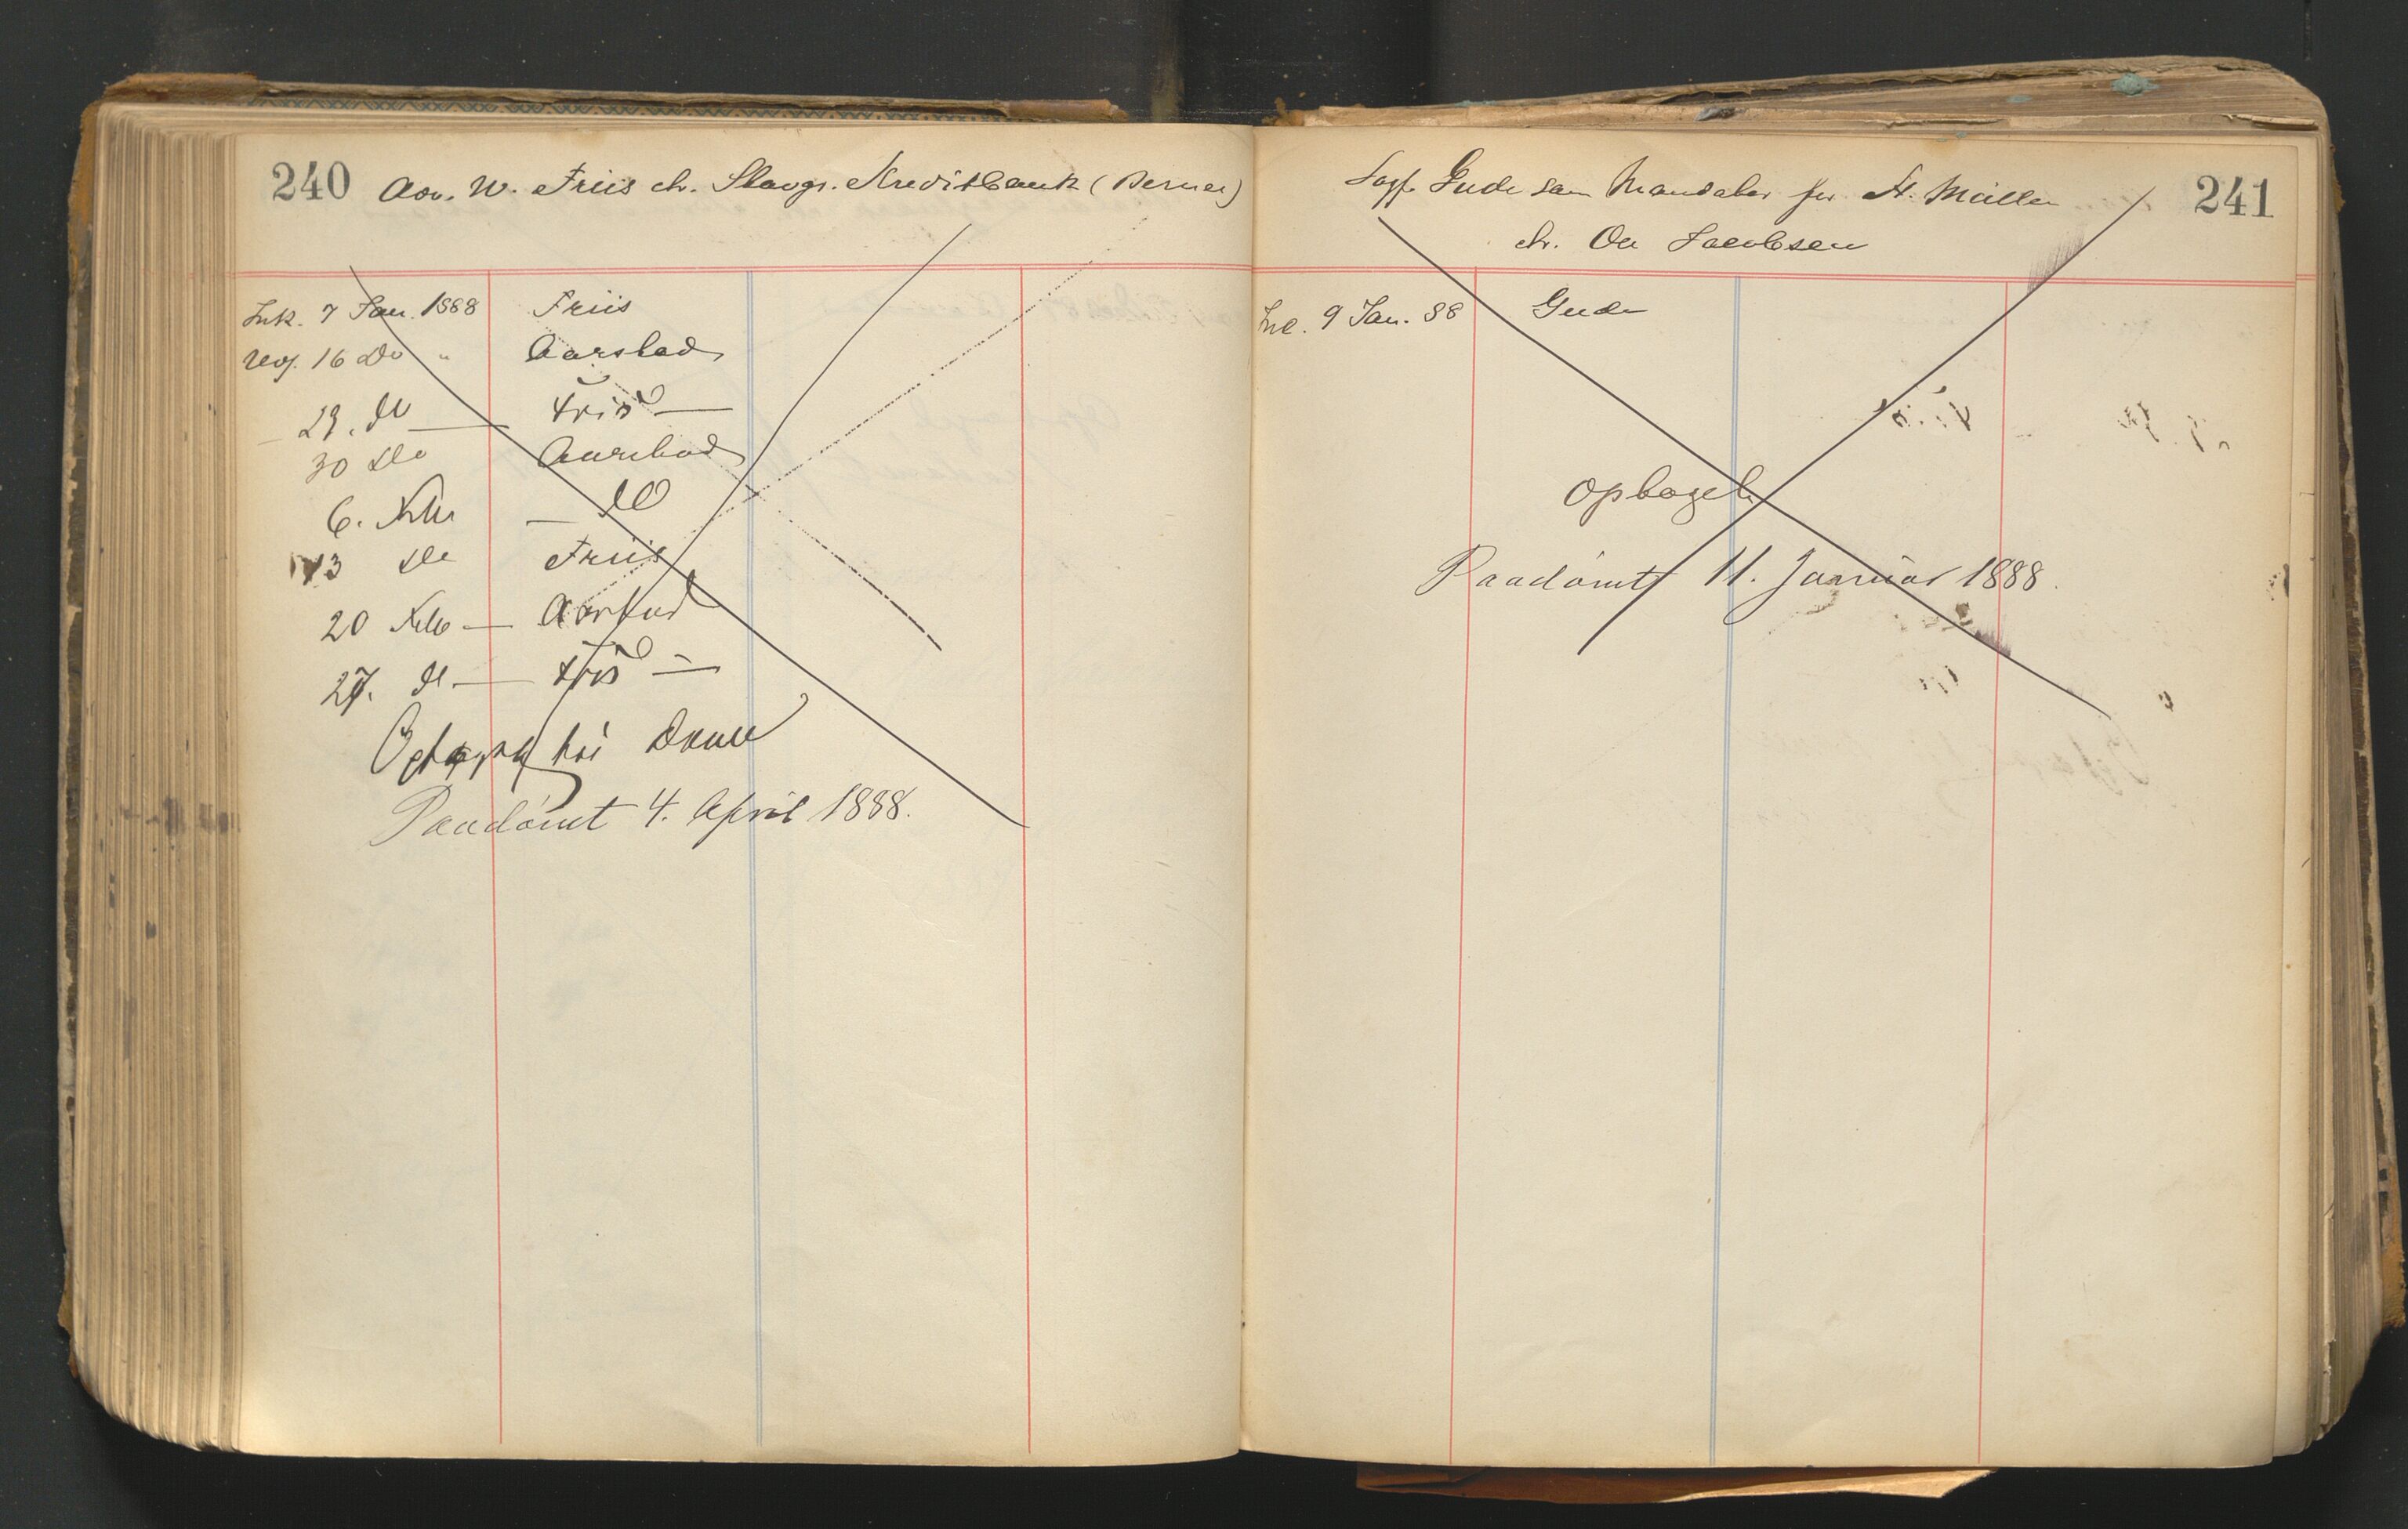 240 Adv. W. Friis ctr. Stavgr. Kreditbank (Berner)
Ink. 7 Jan. 1888 Friis
Req. 16 Do " Aarstad
23. do — Friis —
30 Do Aarstad
6. Febr — do
13 Do Friis
20 Feb — Aarstad
27. d — Friis —
Optaget til Doms
Paadömt 4. April 1888.
Sagf. Gude som Mandatar for H. Müller 241
ctr. Ole Jacobsen
Ink. 9 Jan. 88 Gude
Optaget
Paadömt 11. Januar 1888.